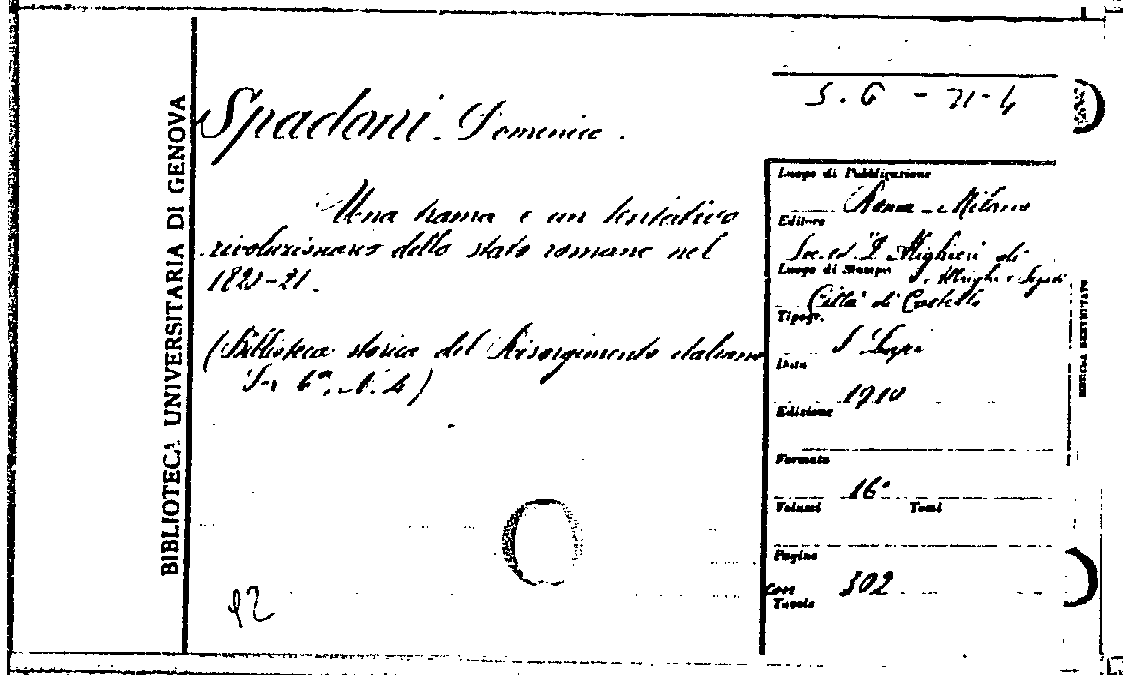 BIBLIOTECA UNIVERSITARIA DI GENOVA
S. G - 71-4
Spadoni. Domenico.
Una trama e un tentativo
rivoluzionario dello stato romano nel
1821-21.
(Biblioteca storica del Risorgimento italiano
Sr 6ª, N. 4)
92
Luogo di Pubblicazione
Roma - Milano
Editore
Soc. ed. "D. Alighieri" di
Luogo di Stampa
Albrighi e Segati
Città di Castello
Tipogr.
S. Lapi
Data
1910
Edizione
Formato
16°
Volumi Tomi
Pagine
302
Con
Tavole